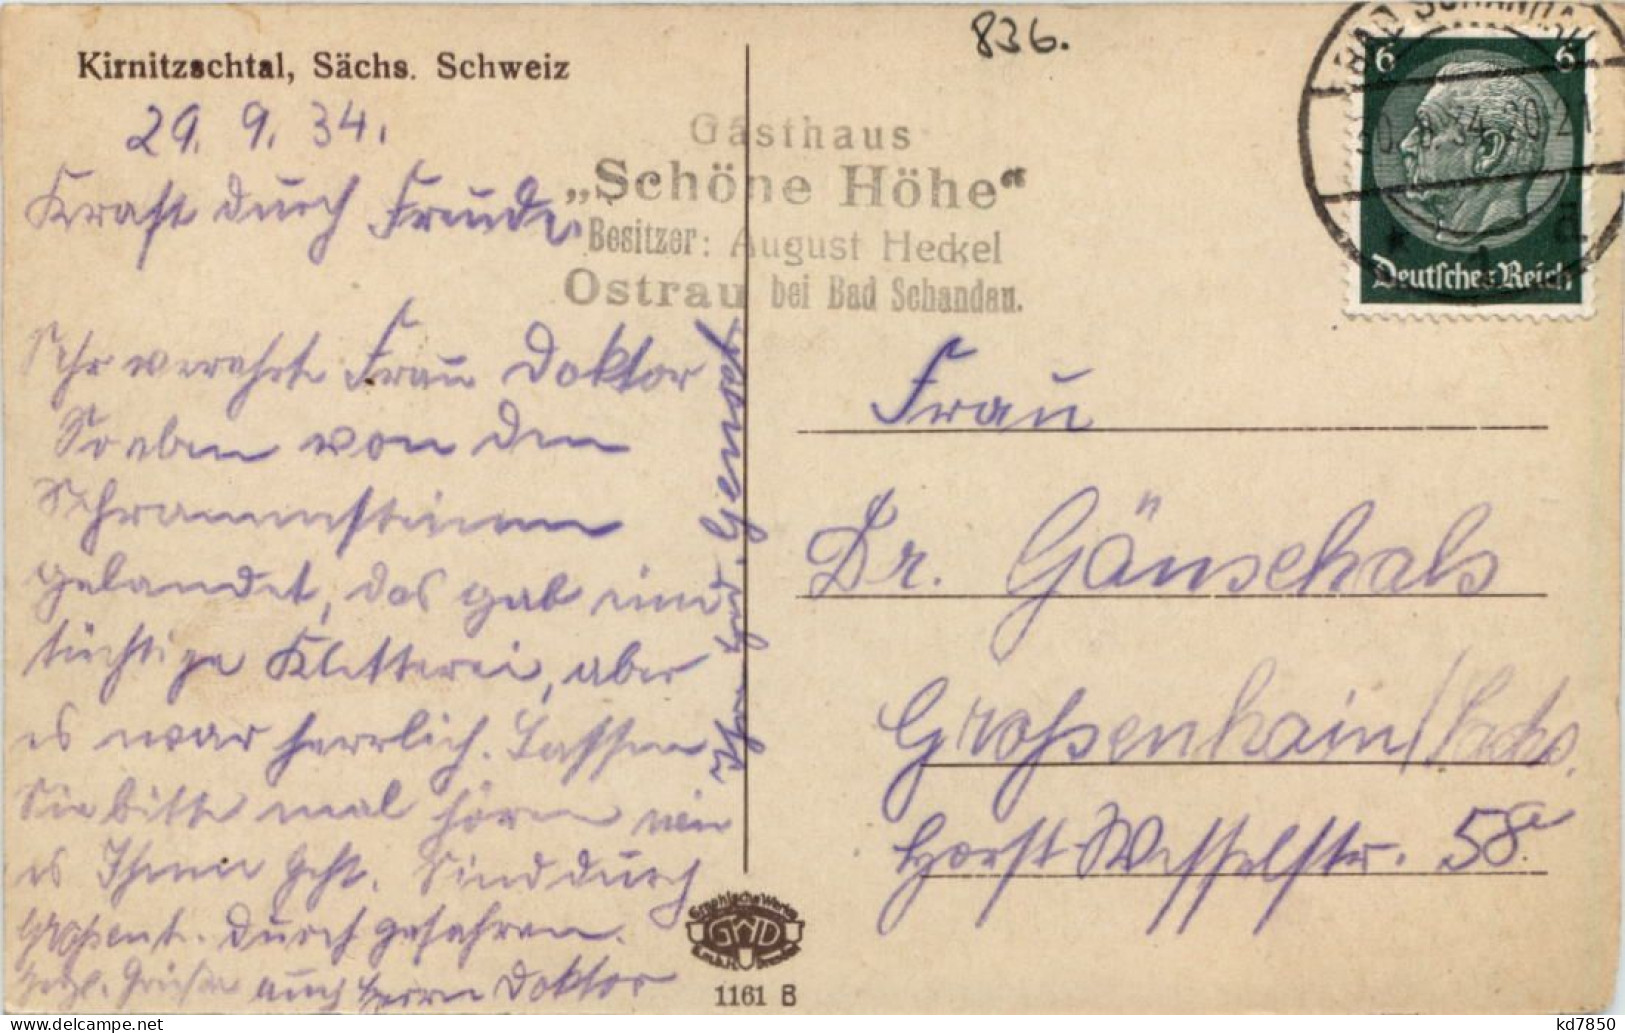 836.
Kirnitzschtal, Sächs. Schweiz
29. 9. 34.
Kraft durch Freude.
Gasthaus
„Schöne Höhe“
Besitzer: August Heckel
Ostrau bei Bad Schandau.
BAD SCHANDAU
30. 8. 34. 20-21
* a
6 6
Deutsches Reich
Sehr verehrte Frau Doktor
So eben von den
Schrammsteinen
gelandet, das gab eine
tüchtige Kletterei, aber
es war herrlich. Lassen
Sie bitte mal hören wie
es Ihnen geht. Sind durch
Großenh. durch gefahren.
Herzl. Grüße auch Herrn Doktor
Frau
Dr. Gänsehals
Großenhain/Sachs.
Horst Wesselstr. 58
Graphische Werke
GWD
G.m.b.H. Dresden
1161 B
kd7850